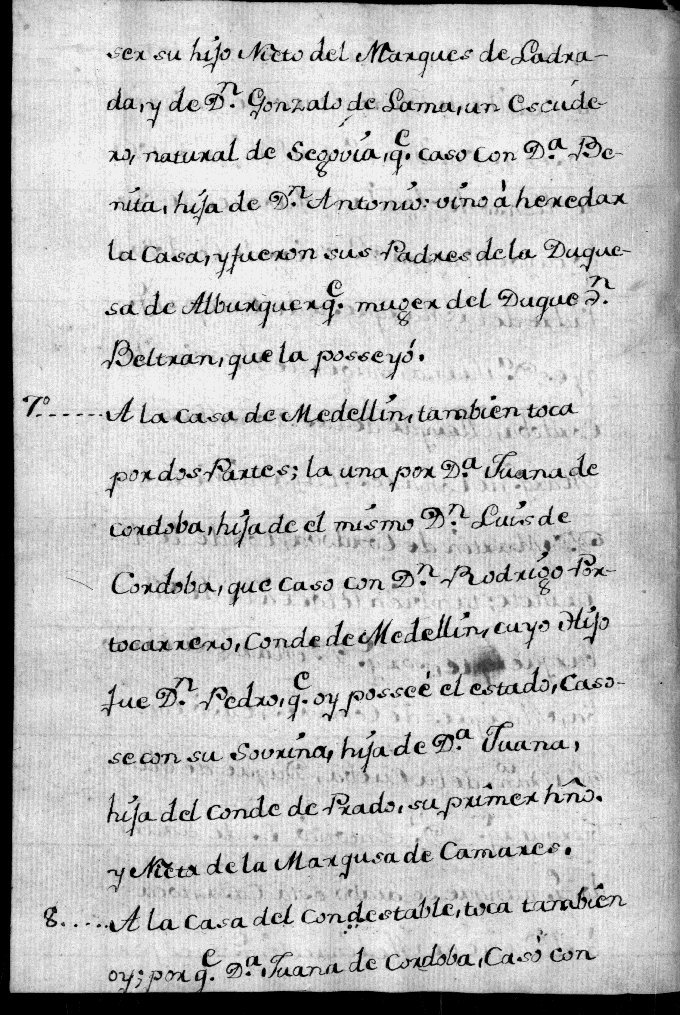 ser su hijo Nieto del Marques de Ladra-
da, y de Dn. Gonzalo de Lama, un Escude-
ro, natural de Segovia, qe. caso con Da. Be-
nita, hija de Dn. Antonio: vino à heredar
la Casa, y fueron sus Padres de la Duque-
sa de Alburquerqe. muger del Duque Dn.
Beltran, que la posseyó.
7o...... A la Casa de Medellin, tambien toca
por dos Partes; la una por Da. Juana de
cordoba, hija de el mismo Dn. Luis de
Cordoba, que caso con Dn. Rodrigo Por-
tocarrero, Conde de Medellin, cuyo Hijo
fue Dn. Pedro, qe. oy posseé el estado, Caso-
se con su Sovrina, hija de Da. Juana,
hija del Conde de Prado, su primer hno.
y Nieta de la Marqusa de Camares.
8..... A la Casa del Condestable, toca tambien
oy; por qe. Da. Juana de Cordoba, Casó con